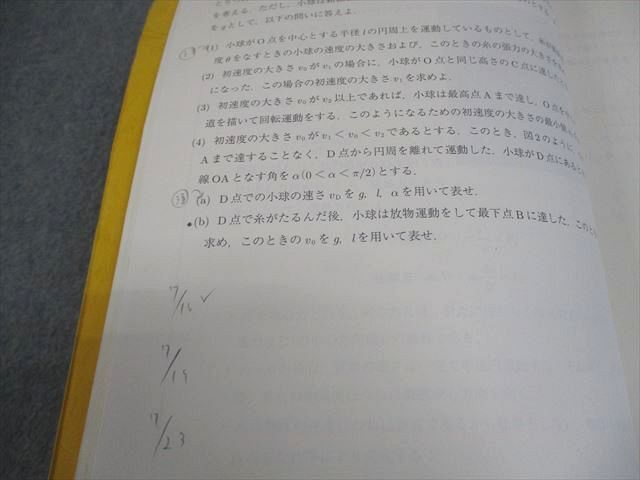 を考える．ただし，小球は
をgとして，以下の問いに答えよ．
(1) 小球がO点を中心とする半径lの円周上を運動しているものとして，
度θをなすときの小球の速度の大きさおよび，このときの糸の張力の大きさを
(2) 初速度の大きさv₀がv₁の場合に，小球がO点と同じ高さのC点に達したと
になった．この場合の初速度の大きさv₁を求めよ．
(3) 初速度の大きさv₀がv₂以上であれば，小球は最高点Aまで達し，O点を
道を描いて回転運動をする．このようになるための初速度の大きさの最小値
(4) 初速度の大きさv₀がv₁＜v₀＜v₂であるとする．このとき，図2のように，
Aまで達することなく，D点から円周を離れて運動した．小球がD点にあると
線OAとなす角をα(0＜α＜π/2)とする．
(a) D点での小球の速さv_Dをg，l，αを用いて表せ．
•(b) D点で糸がたるんだ後，小球は放物運動をして最下点Bに達した．このと
求め，このときのv₀をg，lを用いて表せ．
7/16 ✓
7/19
7/23